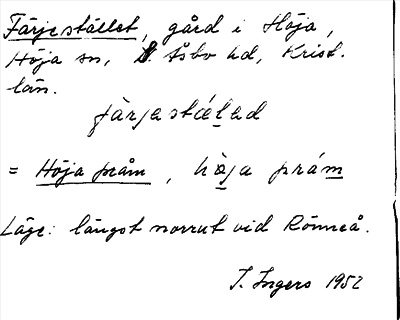 Färjestället, gård i Höja,
Höja sn, S. Åsbo hd, Krist.
län.
färjastäled
= Höja pråm, höja pråm
Läge: längst norrut vid Rönneå.
I. Ingers 1952